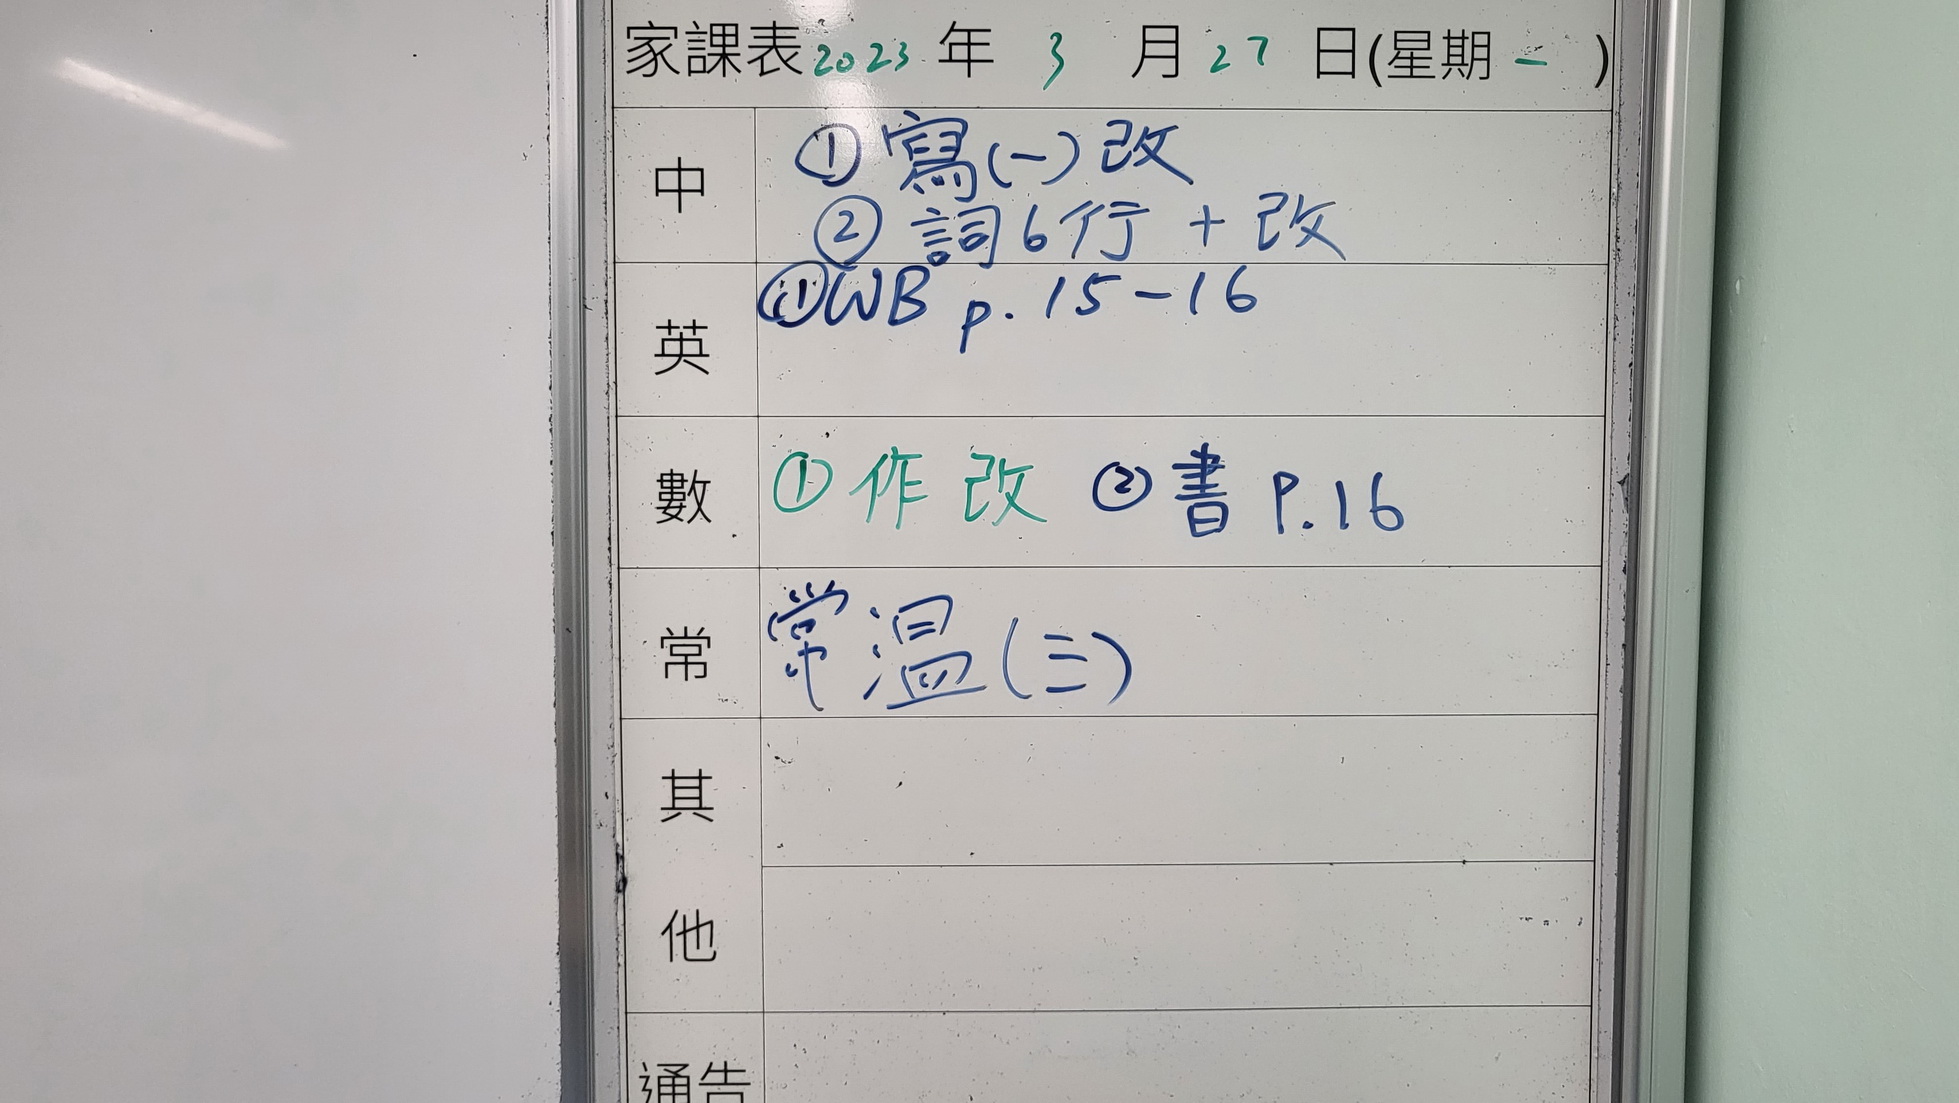 家課表 2023 年 3 月 27 日(星期 一 )
中
① 寫(一)改
② 詞6行 + 改
英
① WB p. 15-16
數
① 作 改 ② 書 P.16
常
常 溫 (三)
其
他
通告